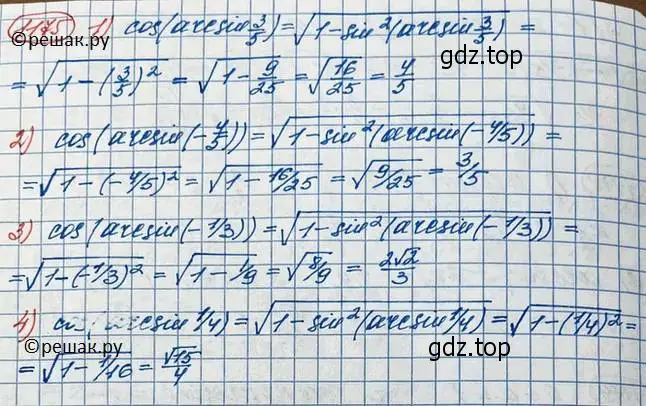 1175 1) cos(arcsin 3/5) = √(1-sin²(arcsin 3/5)) =
©решак.ру
gdz.top
= √(1-(3/5)²) = √(1-9/25) = √(16/25) = 4/5
2) cos(arcsin(-4/5)) = √(1-sin²(arcsin(-4/5))) =
= √(1-(-4/5)²) = √(1-16/25) = √(9/25) = 3/5
3) cos(arcsin(-1/3)) = √(1-sin²(arcsin(-1/3))) =
= √(1-(-1/3)²) = √(1-1/9) = √(8/9) = 2√2/3
4) cos(arcsin 1/4) = √(1-sin²(arcsin 1/4)) = √(1-(1/4)²) =
©решак.ру
= √(1-1/16) = √15/4
gdz.top